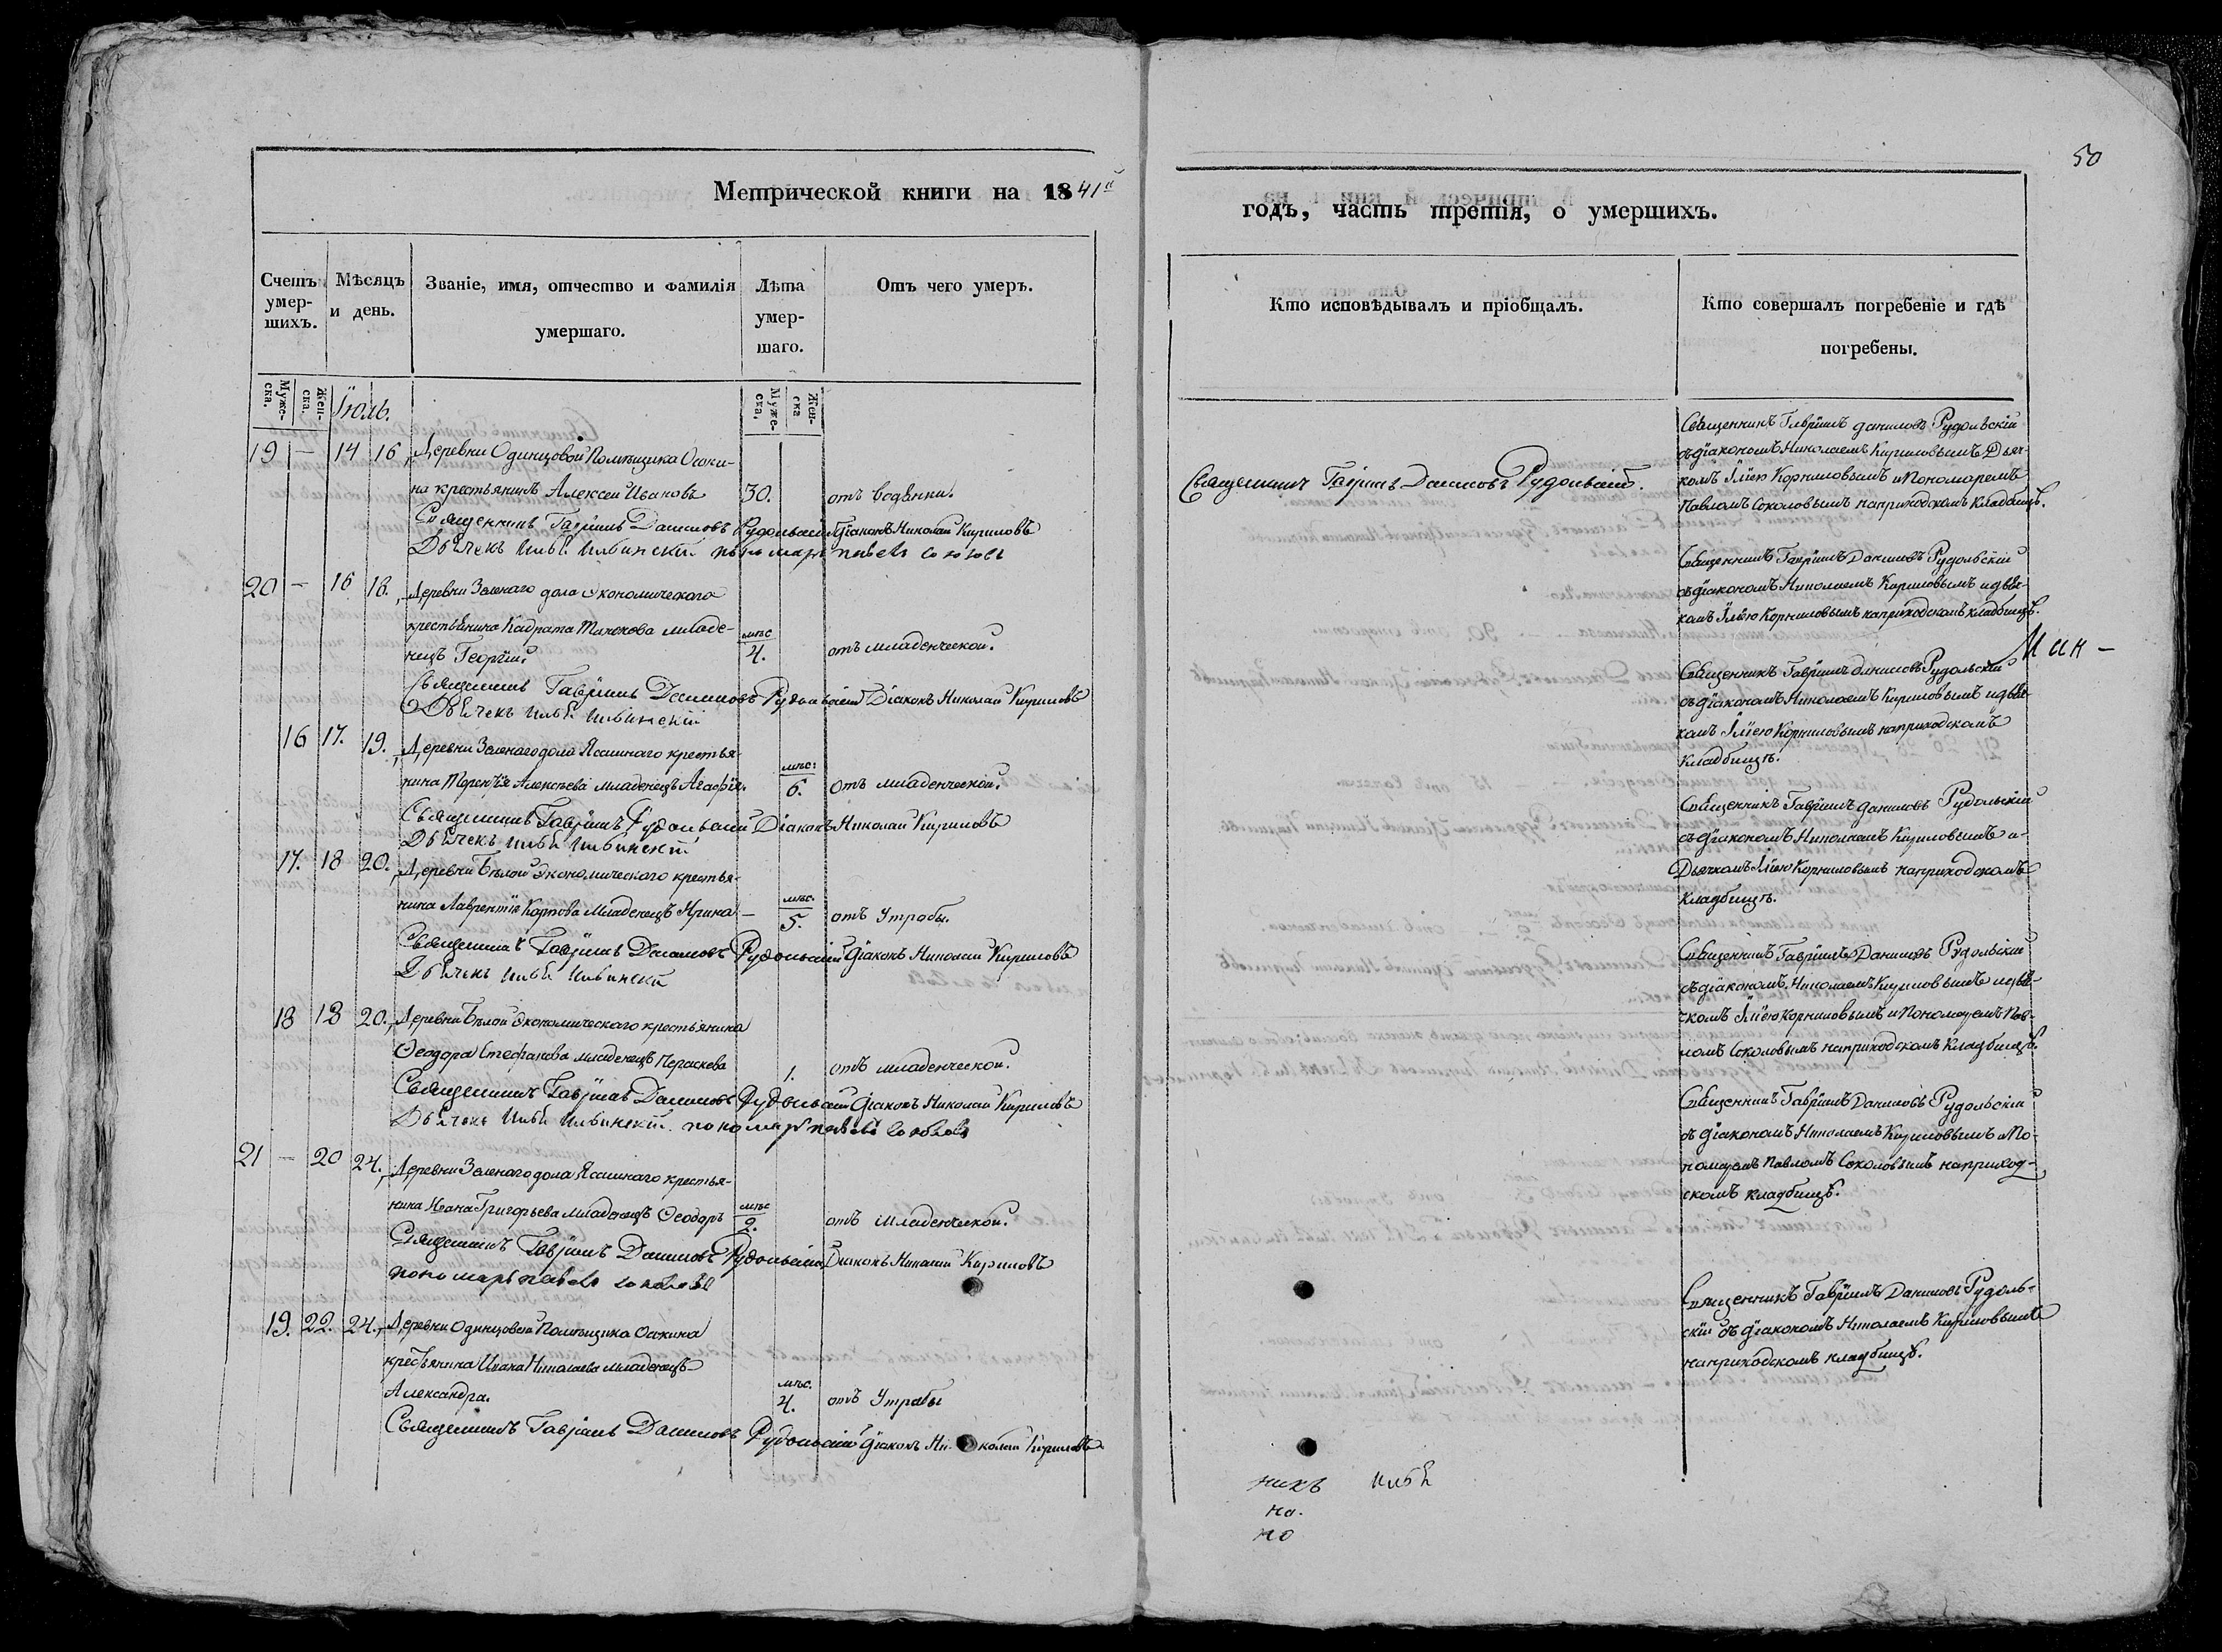 Метрической книги на 1841й
Счетъ умер-шихъ.
Мѣсяцъ и день.
Званіе, имя, отчество и фамилія
умершаго.
Лѣта умер-шаго.
Отъ чего умеръ.
Муже-ска.
Жен-ска.
Іюль.
Муже-ска,
Жен-ска
19 — 14 16 Деревни Одинцовой Помѣщика Осоки-
на крестьянинъ Алексей Ивановъ 30. отъ водянки.
Священникъ Гавріилъ Даниловъ Рудольскій Діаконъ Николай Кириловъ
Дьячекъ Илья Ильинскій пономарь павелъ соколовъ
20 — 16 18. Деревни Зеленаго дола экономическаго
крестьянина младе- мѣс
нецъ Георгій. 4. отъ младенческой.
Священникъ Гавріилъ Даниловъ Рудольскій Діаконъ Николай Кириловъ
Дьячекъ Илья Ильинскій
16 17. 19. Деревни Зеленаго дола Ясашнаго крестья-
нина Терентія Алексѣева младенецъ Агафія. мѣс: 6. отъ младенческой.
Священникъ Гавріилъ Рудольскій Діаконъ Николай Кириловъ
Дьячекъ Илья Ильинскій
17. 18 20. Деревни Бѣлой Экономическаго крестья-
нина Лаврентія Карпова Младенецъ Ирина — мѣс. 5. отъ Утробы.
Священникъ Гавріилъ Даниловъ Рудольскій Діаконъ Николай Кириловъ
Дьячекъ Илья Ильинскій
18 18 20. Деревни Бѣлой Экономическаго крестьянина
Ѳеодора Стефанова младенецъ Параскева 1. отъ младенческой.
Священникъ Гавріилъ Даниловъ Рудольскій Діаконъ Николай Кириловъ
Дьячекъ Илья Ильинскій. пономарь павелъ соколовъ
21 — 20 24. Деревни Зеленаго дола Ясашнаго крестья-
нина Ивана Григорьева младенецъ Ѳеодоръ мѣс 2. отъ младенческой.
Священникъ Гавріилъ Даниловъ Рудольскій Діаконъ Николай Кириловъ
пономарь павелъ соколовъ
19. 22. 24. Деревни Одинцовой Помѣщика Осокина
крестьянина Ивана Николаева младенецъ
Александра. мѣс. 4. отъ Утробы
Священникъ Гавріилъ Даниловъ Рудольскій Діаконъ Николай Кириловъ.
50
годъ, часть третія, о умершихъ.
Кто исповѣдывалъ и пріобщалъ.
Кто совершалъ погребеніе и гдѣ
погребены.
Священникъ Гавріилъ Даниловъ Рудольскій.
Священникъ Гавріилъ даниловъ Рудольскій
съ діакономъ Николаемъ Кириловымъ Дьяч-
комъ Ильею Корниловымъ и Пономаремъ
Павломъ Соколовымъ на приходскомъ кладбищѣ.
Священникъ Гавріилъ Даниловъ Рудольскій
съ діакономъ Николаемъ Кириловымъ и дьяч-
комъ Ильею Корниловымъ на приходскомъ кладбищѣ.
Мин -
Священникъ Гавріилъ даниловъ Рудольскій
съ діакономъ Николаемъ Кириловымъ и дьяч-
комъ Ильею Корниловымъ на приходскомъ
кладбищѣ.
Священникъ Гавріилъ даниловъ Рудольскій
съ діакономъ Николаемъ Кириловымъ и
Дьячкомъ Ильею Корниловымъ на приходскомъ
кладбищѣ.
Священникъ Гавріилъ Даниловъ Рудольскій
съ діакономъ Николаемъ Кириловымъ и дья-
чкомъ Ильею Корниловымъ и Пономаремъ Пав-
ломъ Соколовымъ на приходскомъ кладбищѣ.
Священникъ Гавріилъ Даниловъ Рудольскій
съ діакономъ Николаемъ Кириловымъ и По-
номаремъ Павломъ Соколовымъ на приход-
скомъ кладбищѣ.
Священникъ Гавріилъ Даниловъ Рудоль-
скій съ діакономъ Николаемъ Кириловымъ
на приходскомъ кладбищѣ.
никъ Илья
на.
но